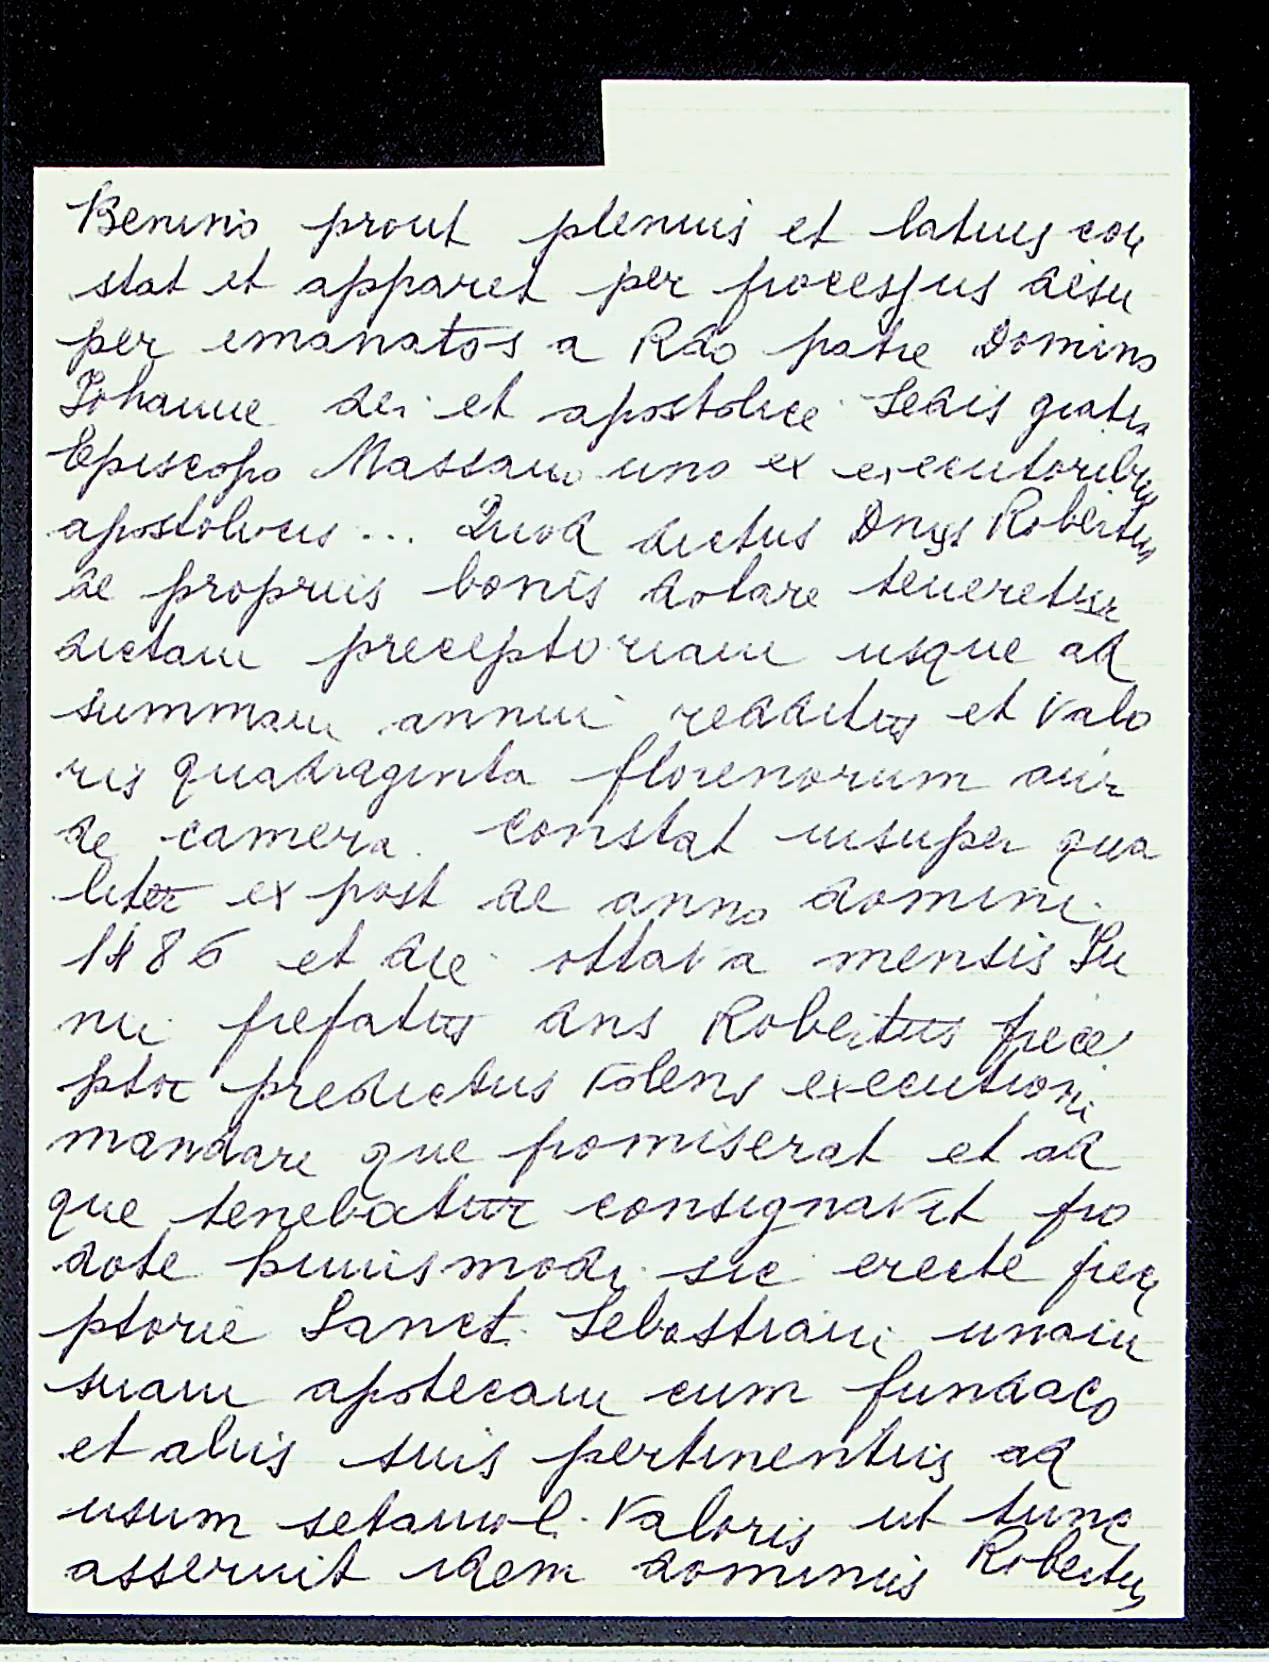 Benino prout plenius et latius con
stat et apparet per processus desu
per emanatos a Rdo patre Domino
Johanne dei et apostolice Sedis gratia
Episcopo Massano uno ex executoribus
apostolicis ... Quod dictus Dnus Robertus
de propriis bonis dotare teneretur
dictam preceptoriam usque ad
summam annui redditus et valo
ris quadraginta florenorum auri
de camera. Constat insuper qua
liter ex post de anno domini
1486 et die ottava mensis Iu
nii prefatus dns Robertus prece
ptor predictus volens executioni
mandare que promiserat et ad
que tenebatur consignavit pro
dote huiusmodi sic erecte prece
ptorie Sanct. Sebastiani unam
suam apotecam cum fundaco
et aliis suis pertinentiis ad
usum setaiuol. valoris ut tunc
asseruit idem dominus Robertus